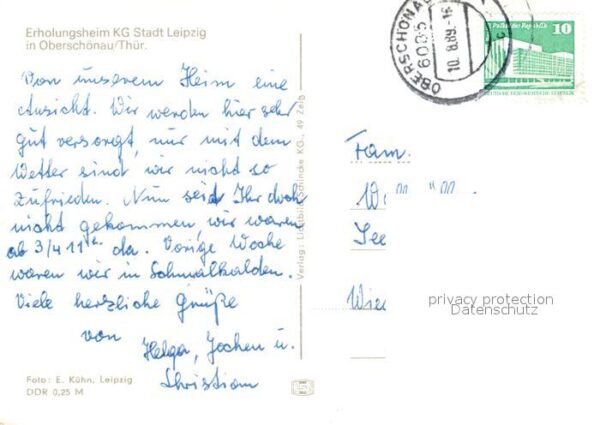 Erholungsheim KG Stadt Leipzig
in Oberschönau/Thür.
Von unserem Heim eine
Ansicht. Wir werden hier sehr
gut versorgt, nur mit dem
Wetter sind wir nicht so
zufrieden. Nun seid Ihr doch
nicht gekommen, wir waren
ab 3/4 11 da. Vorige Woche
waren wir in Schmalkalden.
Viele herzliche Grüße
von
Helga, Jochen u.
Christian
Foto: E. Kühn, Leipzig
DDR 0,25 M
Verlag: Lichtbild Schincke KG., 49 Zeitz
6086
OBERSCHÖNAU
10.8.89.-16
Palast der Republik
10
DEUTSCHE DEMOKRATISCHE REPUBLIK
Fam.
W
See
Wie
privacy protection
Datenschutz